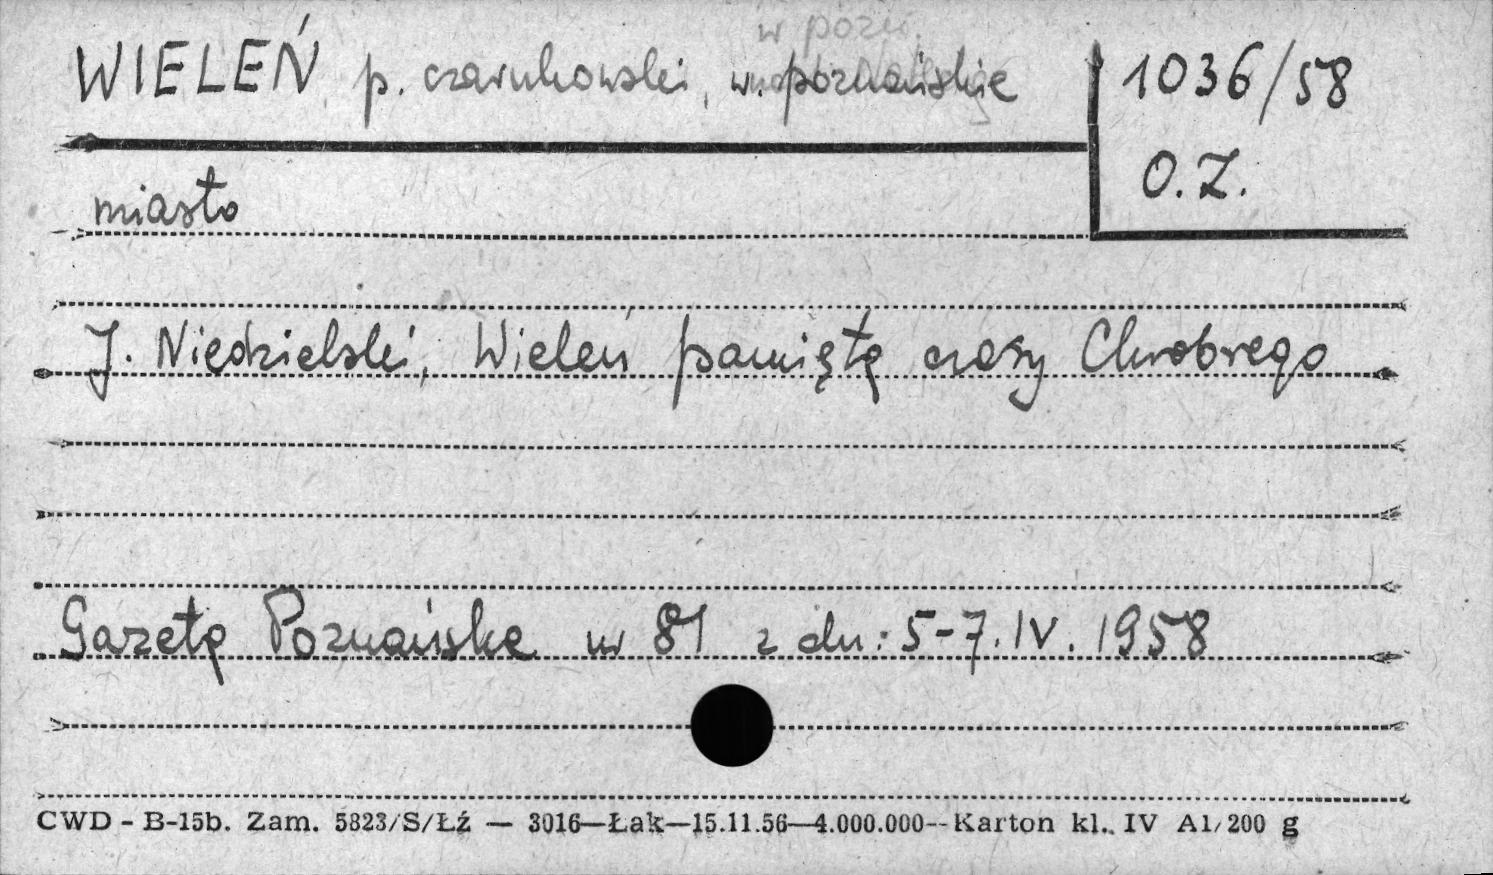 w pozn.
WIELEŃ p. czarnkowski, w. poznańskie
1036/58
O.Z.
miasto
J. Niedzielski, Wieleń pamięta czasy Chrobrego
Gazeta Poznańska nr 81 z dn: 5-7.IV.1958
CWD - B-15b. Zam. 5823/S/Łź — 3016—Łak—15.11.56—4.000.000--Karton kl. IV A1/200 g